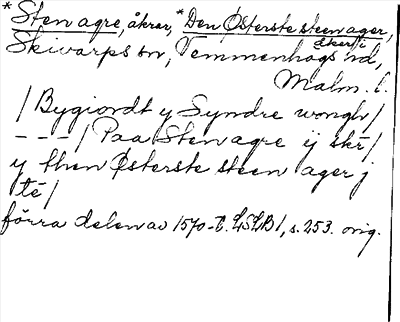 *Sten agre, åkrar, *Den Østerste steen ager,
åker i
Skivarps sn, Vemmenhögs hd,
Malm. l.
/Bygiordt y Syndre wongh/
- - -/ Paa Sten agre ij skr/
y then Østerste steen ager j
te/
förra delen av 1570-t. LSLB1, s. 253. orig.